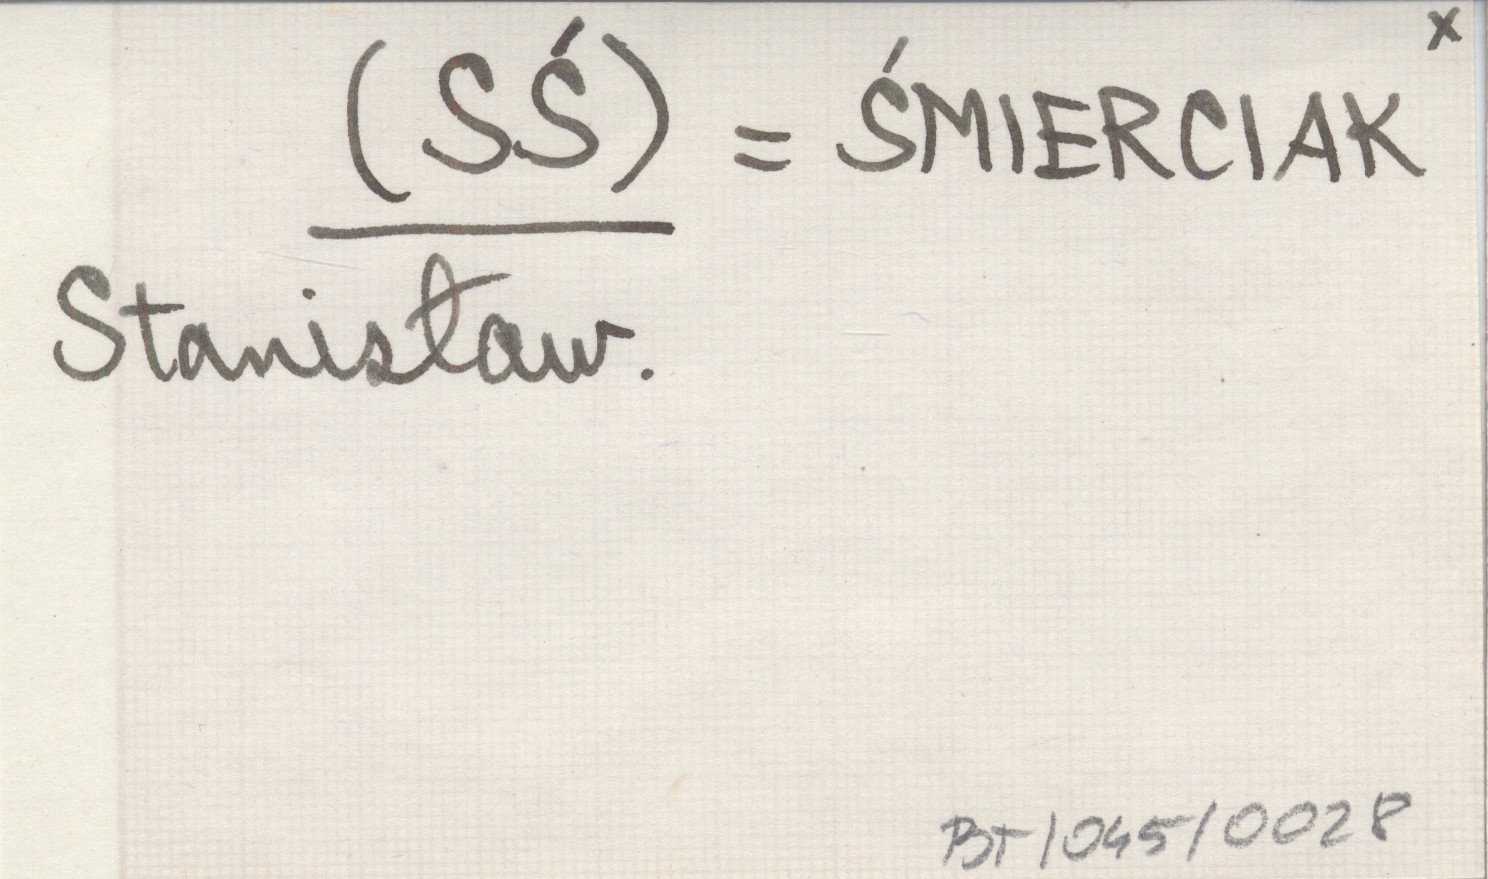 x
(SŚ) = ŚMIERCIAK
Stanisław.
BT/045/0028